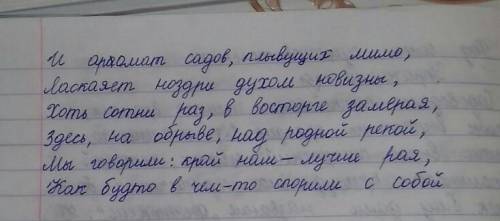 И аромат садов, плывущих мимо,
Ласкает ноздри духом новизны,
Хоть сотни раз, в восторге замерая,
Здесь, на обрыве, над родной рекой,
Мы говорили: край наш – лучше рая,
Как будто в чем-то спорили с собой